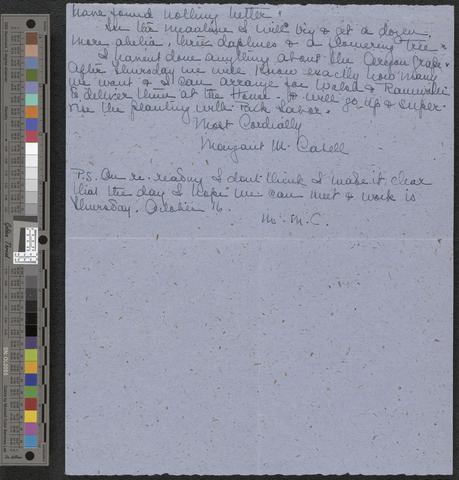 have found nothing better.
In the meantime I will try & get a dozen
more abelia, three daphnes & a flowering tree.
I haven't done anything about the Oregon grape.
After Thursday we will know exactly how many
we want & I can arrange for
to deliver them at the Home. I will go up & super-
vise the planting with Park labor.
Most Cordially
Margaret M. Cabell
P.S. On re-reading I don't think I make it clear
that the day I hope we can meet & work is
Thursday. October 16.
M. M. C.